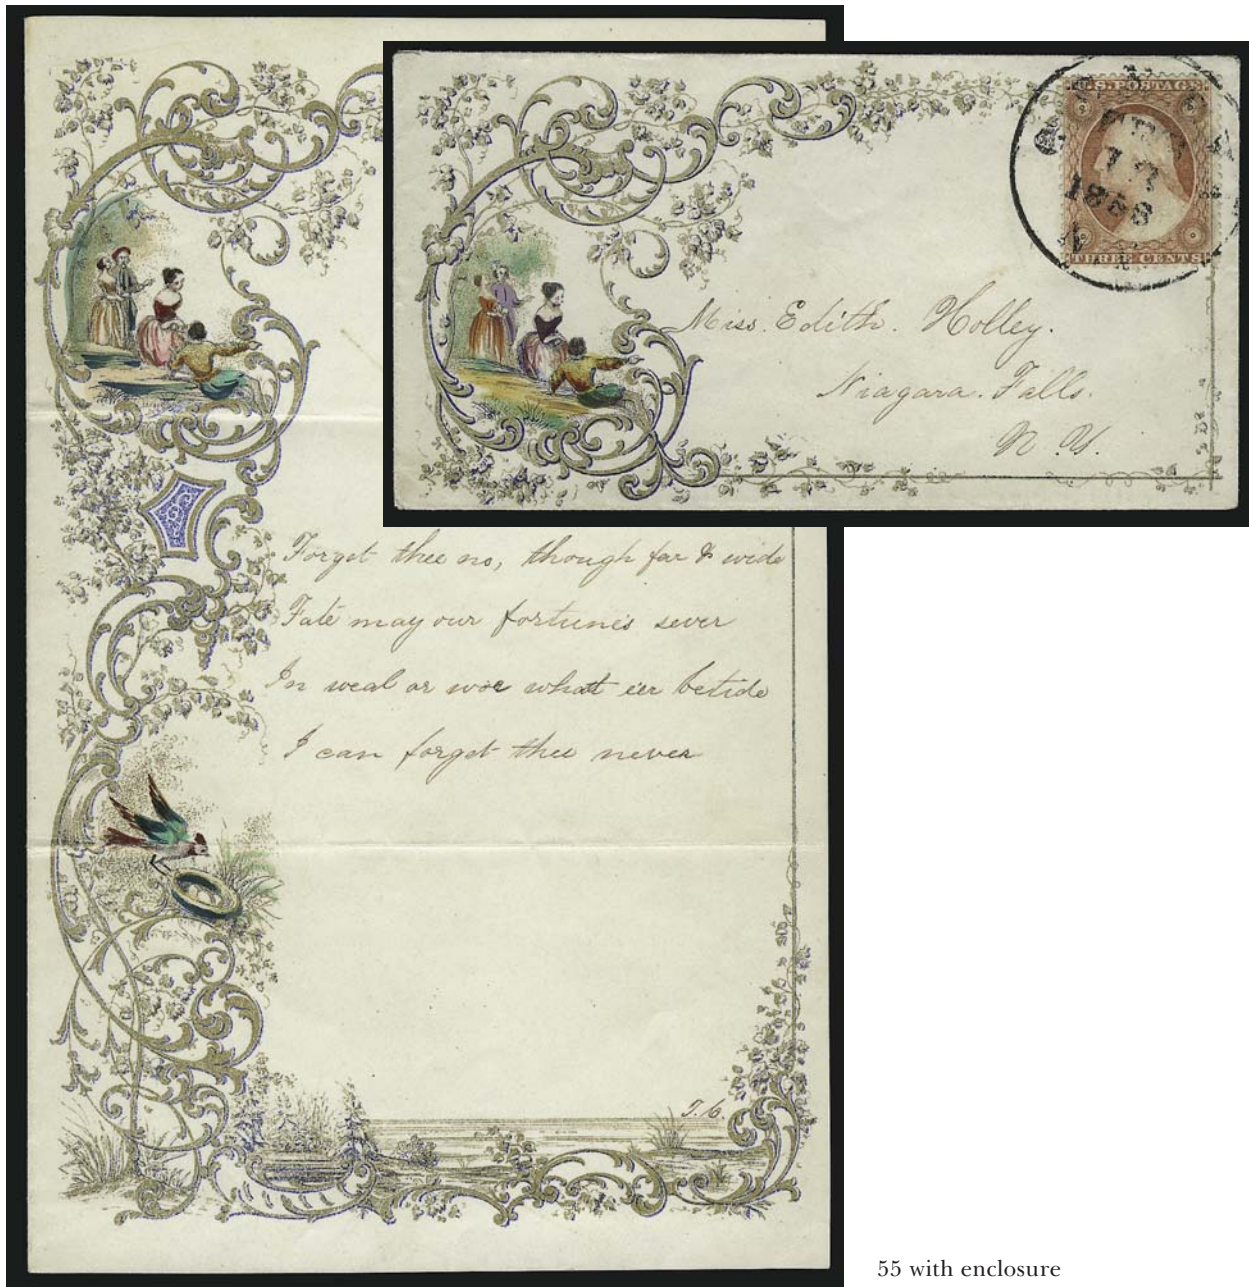 U.S. POSTAGE
17
1858
THREE CENTS
Miss. Edith. Holley.
Niagara. Falls.
N. Y.
Forget thee no, though far & wide
Fate may our fortunes sever
In weal or woe what eer betide
I can forget thee never
55 with enclosure